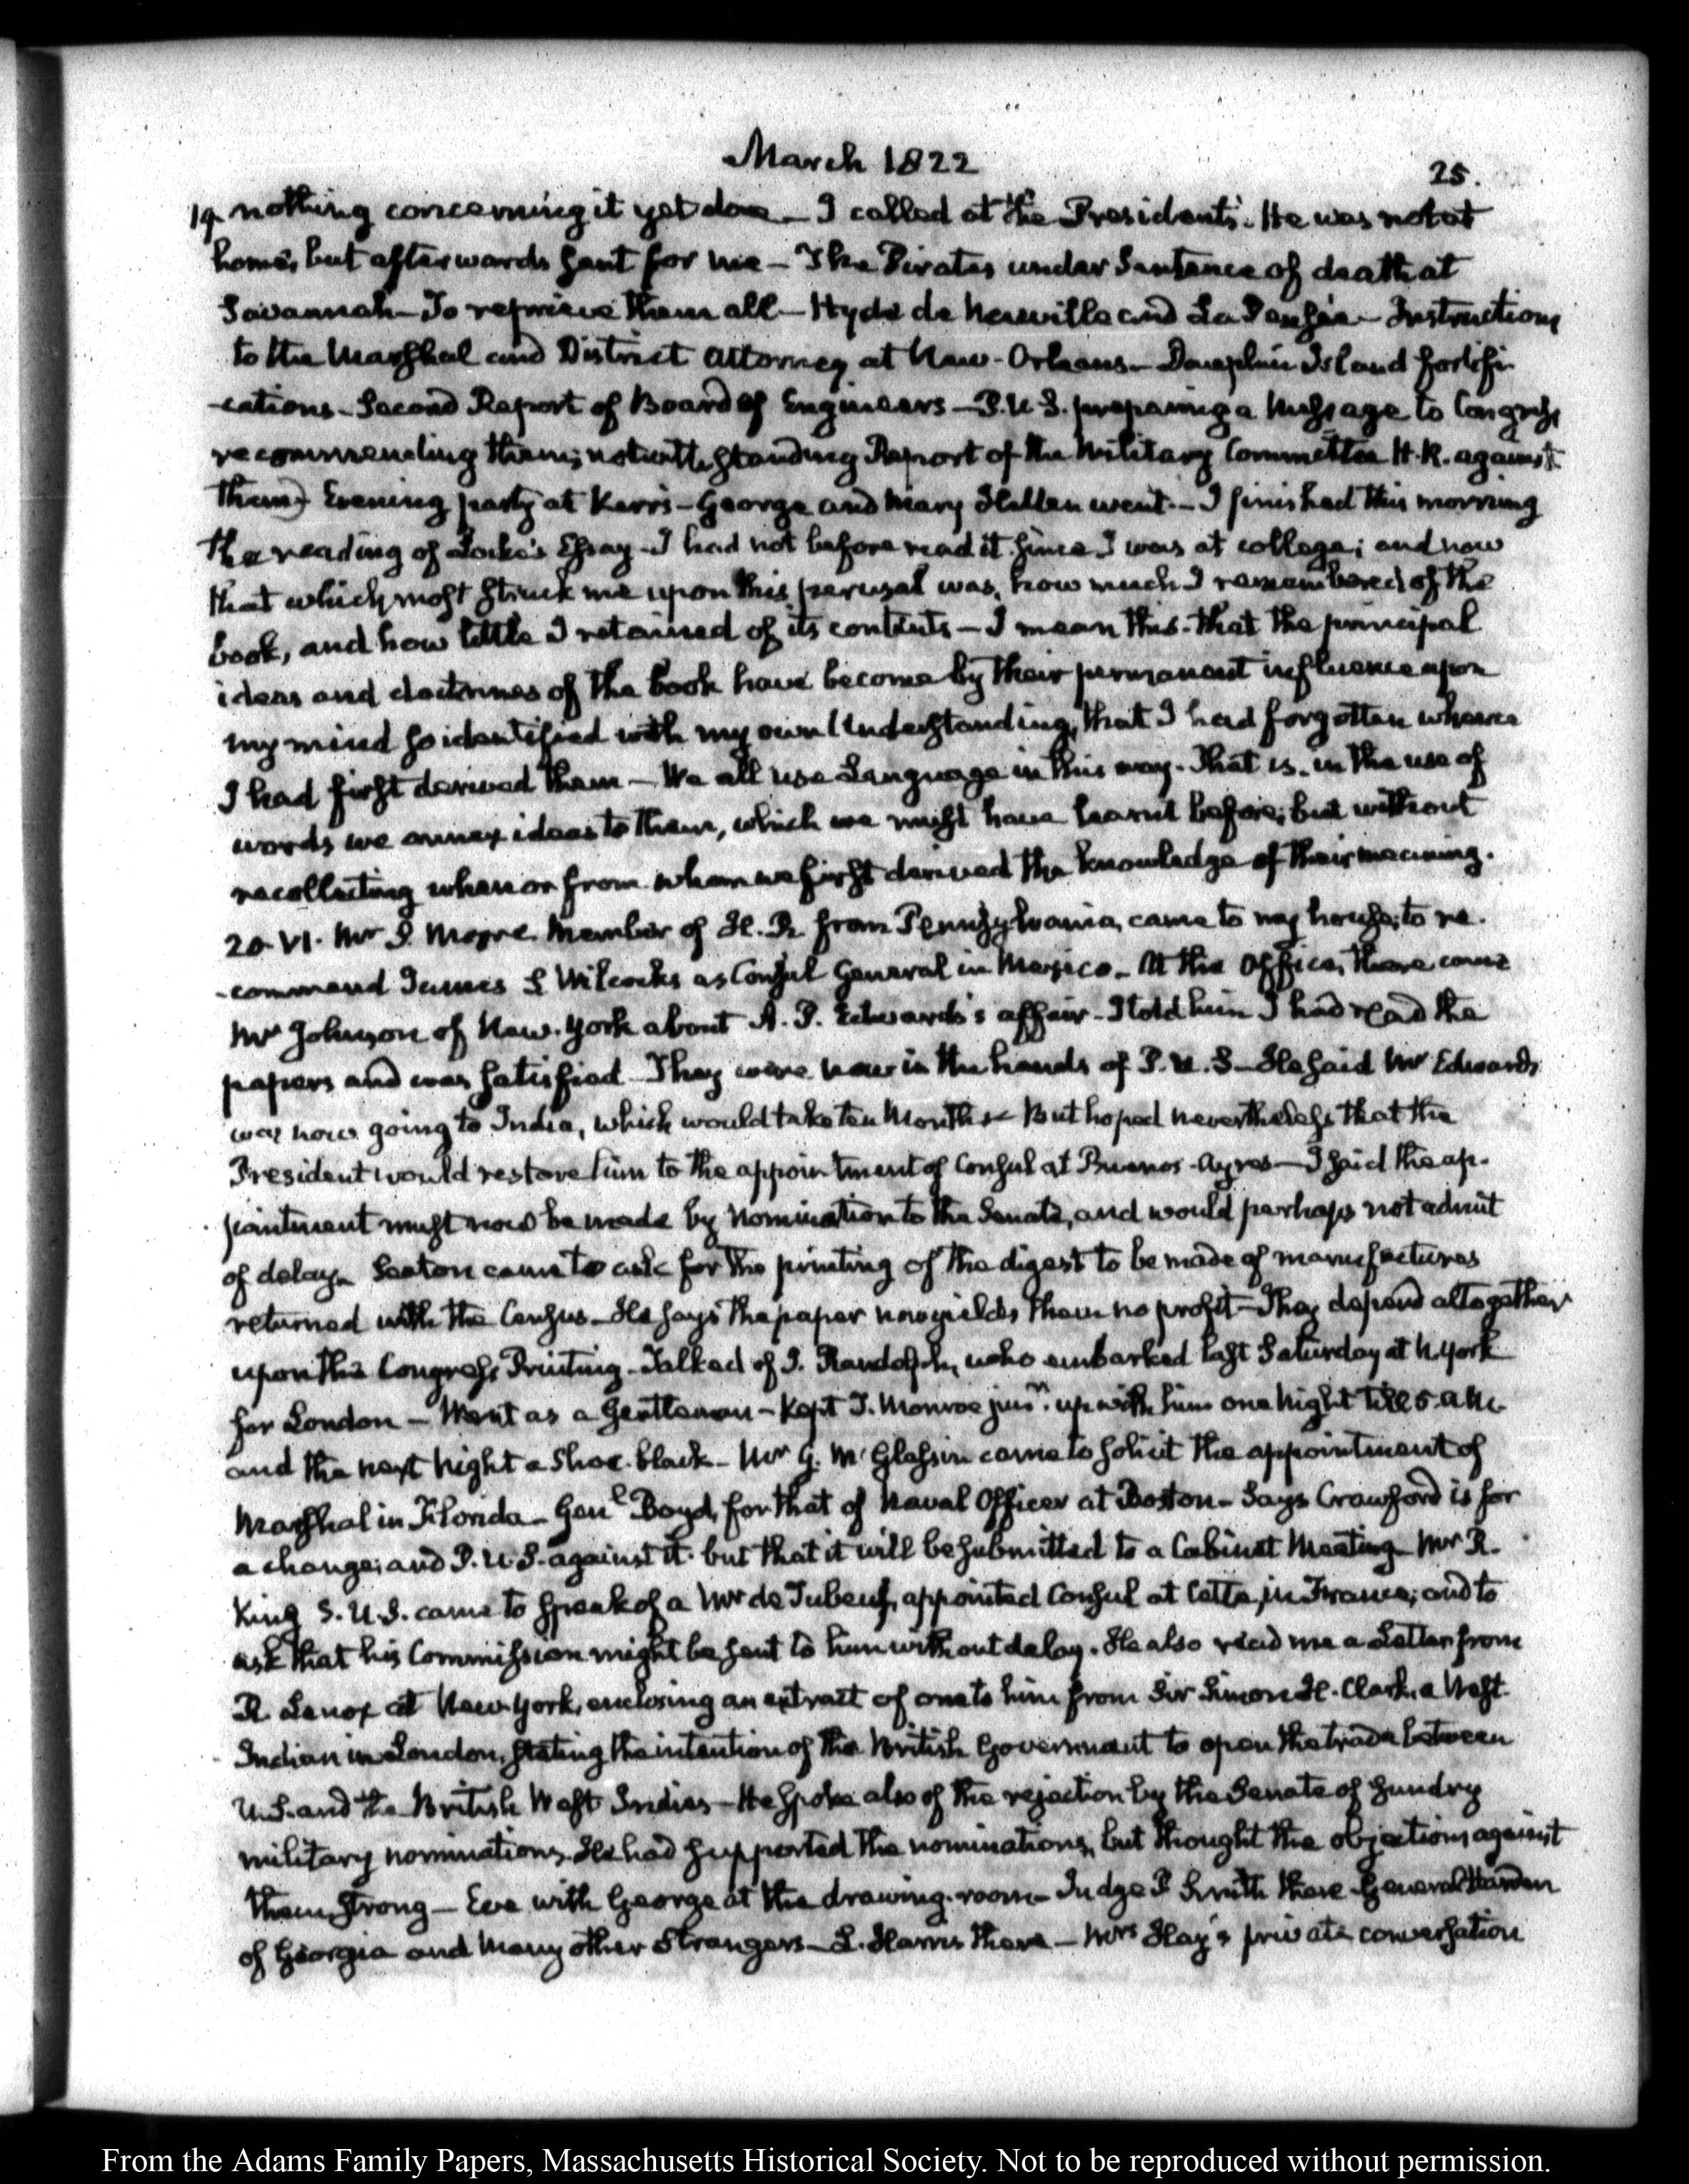 March 1822
25.
19. nothing concerning it yet done — I called at the Presidents. He was not at
home, but afterwards sent for me — The Pirates under Sentence of death at
Savannah — To reprieve them all — Hyde de Neuville and La Pensée — Instructions
to the Marshal and District Attorney at New-Orleans — Dauphin Island fortifi
-cations — Second Report of Board of Engineers — P.U.S. preparing a Message to Congress
recommending them; notwithstanding Report of the Military Committee H.R. against
them) Evening party at Kerr's — George and Mary Hellen went. — I finished this morning
the reading of Locke's Essay — I had not before read it since I was at college; and now
that which most struck me upon this perusal was, how much I remembered of the
book, and how little I retained of its contents — I mean this. That the principal
ideas and doctrines of the book have become by their permanent influence upon
my mind so identified with my own Understanding, that I had forgotten whence
I had first derived them — We all use Language in this way. That is, in the use of
words we annex ideas to them, which we must have learnt before; but without
recollecting when or from whom we first derived the knowledge of their meaning.
20. VI. Mr S. Moore Member of H.R. from Pennsylvania, came to my house, to re-
-commend James S Wilcocks as Consul General in Mexico — At the Office, there came
Mr Johnson of New-York about A. P. Edwards's affair — I told him I had read the
papers and was satisfied — They were now in the hands of P.U.S — He said Mr Edwards
was now going to India, which would take ten Months — But hoped nevertheless that the
President would restore him to the appointment of Consul at Buenos-Ayres — I said the ap-
pointment must now be made by nomination to the Senate, and would perhaps not admit
of delay. Seaton came to ask for the printing of the digest to be made of manufactures
returned with the Census — He says the paper now yields them no profit — They depend altogether
upon the Congress Printing — Talked of J. Randolph, who embarked last Saturday at N. York
for London — Went as a Gentleman — Kept J. Monroe junr. up with him one night till 5. A.M.
and the next night a shoe-black — Mr G. McGlassin came to solicit the appointment of
Marshal in Florida — Genl Boyd, for that of Naval Officer at Boston — Says Crawford is for
a change; and P.U.S. against it. but that it will be submitted to a Cabinet Meeting — Mr R.
King S.U.S. came to speak of a Mr de Tubeuf, appointed Consul at Cette, in France; and to
ask that his Commission might be sent to him without delay. He also read me a Letter from
R. Lenox at New York, enclosing an extract of one to him from Sir Simon H. Clark, a West
Indian in London, stating the intention of the British Government to open the trade between
U.S. and the British West Indies — He spoke also of the rejection by the Senate of sundry
military nominations. He had supported the nominations, but thought the objections against
them strong — Eve with George at the drawing-room — Judge Smith there General Harden
of Georgia and many other Strangers — L. Harris there — Mrs Hay's private conversation
From the Adams Family Papers, Massachusetts Historical Society. Not to be reproduced without permission.